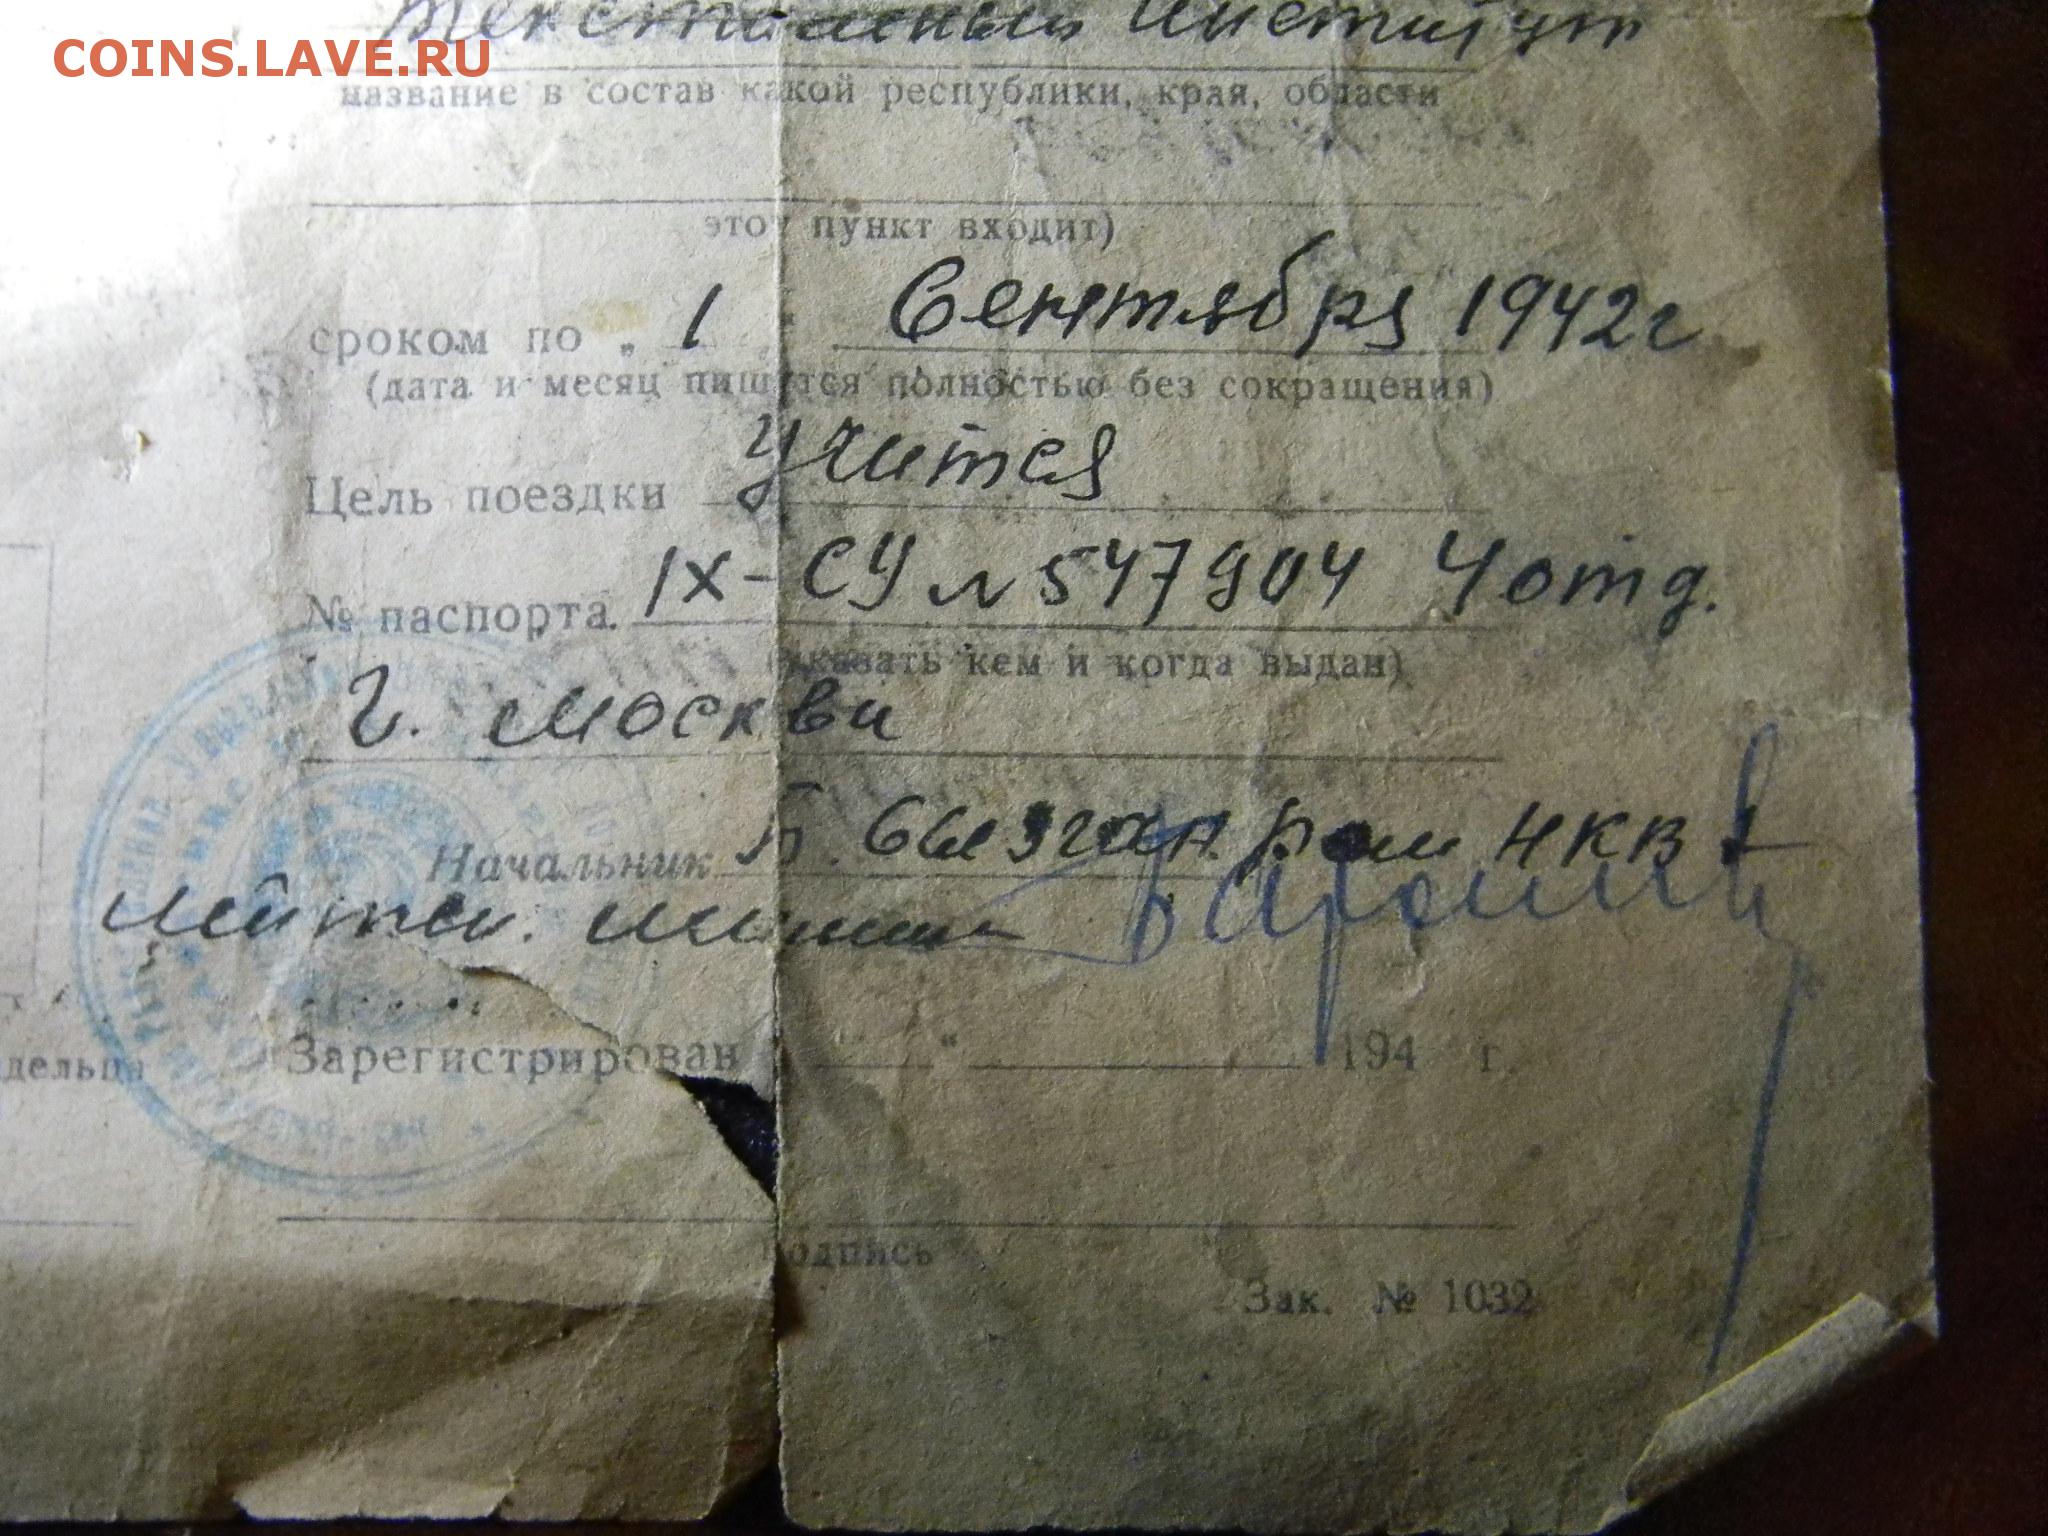 Текстильный Институт
COINS.LAVE.RU
название в состав какой республики, края, области
этот пункт входит)
сроком по „ 1 " Сентября 1942г
(дата и месяц пишутся полностью без сокращения)
Цель поездки Учится
№ паспорта. IX-СУ № 547904 4 отд.
(указать кем и когда выдан)
г. Москви
Начальник НКВД
лейтен. милиции
дельца
Зарегистрирован " " 194 г.
подпись
Зак. № 1032